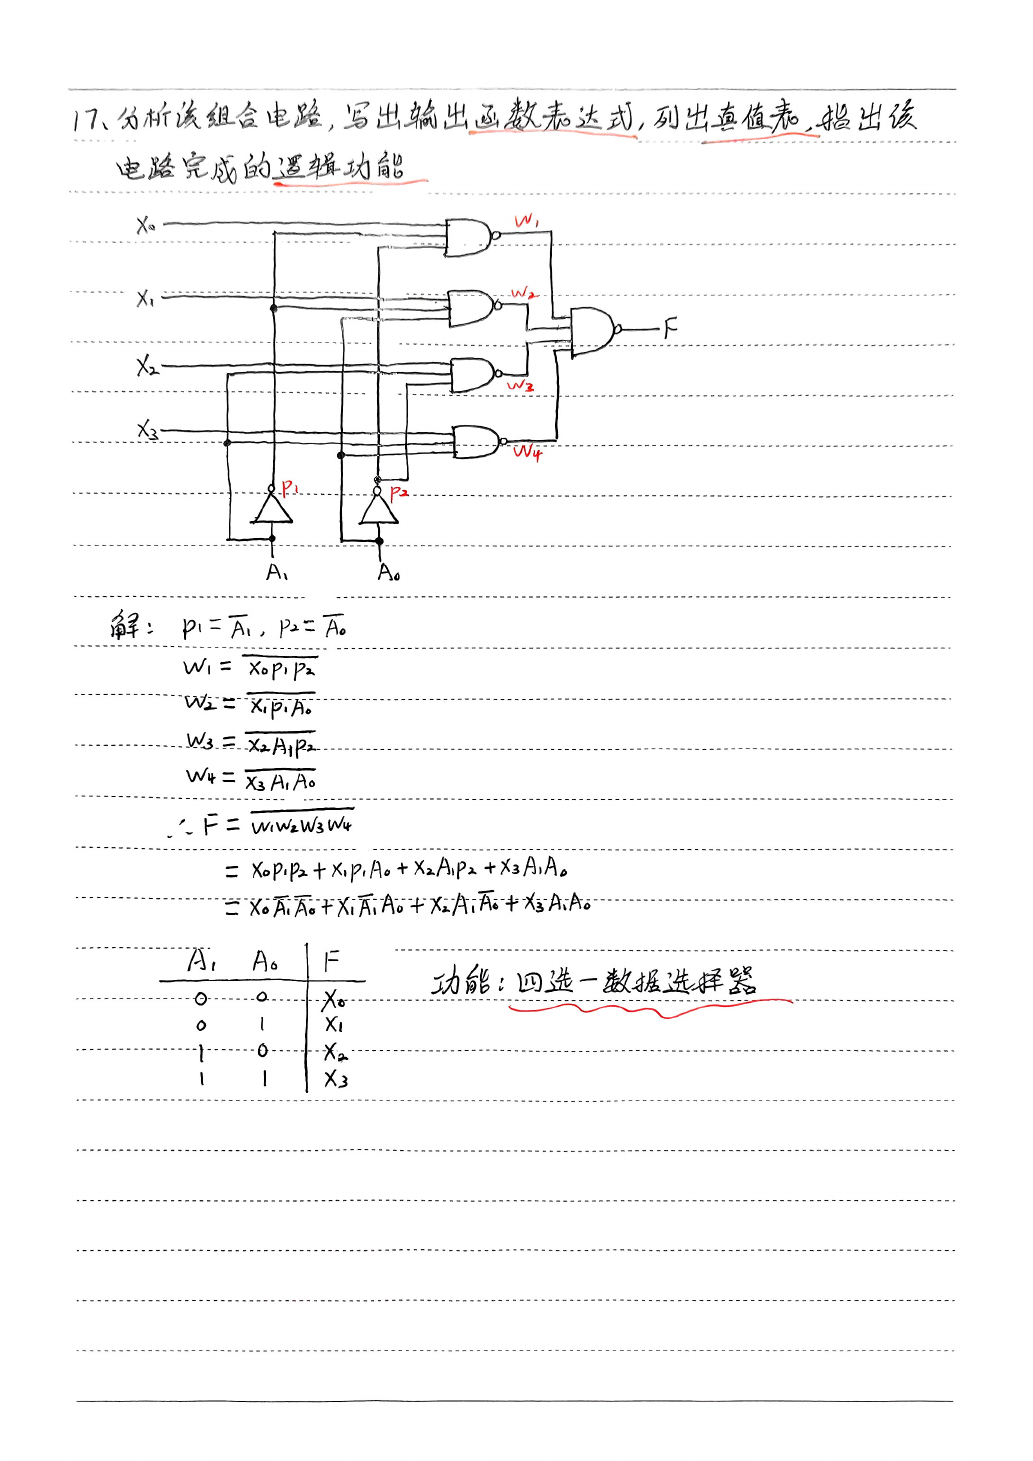 17、分析该组合电路,写出输出函数表达式,列出真值表,指出该
电路完成的逻辑功能
X₀
W₁
X₁
W₂
F
X₂
W₃
X₃
W₄
P₁
P₂
A₁
A₀
解: P₁ = A̅₁, P₂ = A̅₀
W₁ = \overline{X₀P₁P₂}
W₂ = \overline{X₁P₁A₀}
W₃ = \overline{X₂A₁P₂}
W₄ = \overline{X₃A₁A₀}
∴ F = \overline{W₁W₂W₃W₄}
= X₀P₁P₂ + X₁P₁A₀ + X₂A₁P₂ + X₃A₁A₀
= X₀A̅₁A̅₀ + X₁A̅₁A₀ + X₂A₁A̅₀ + X₃A₁A₀
A₁ A₀ F
功能: 四选一数据选择器
0 0 X₀
0 1 X₁
1 0 X₂
1 1 X₃